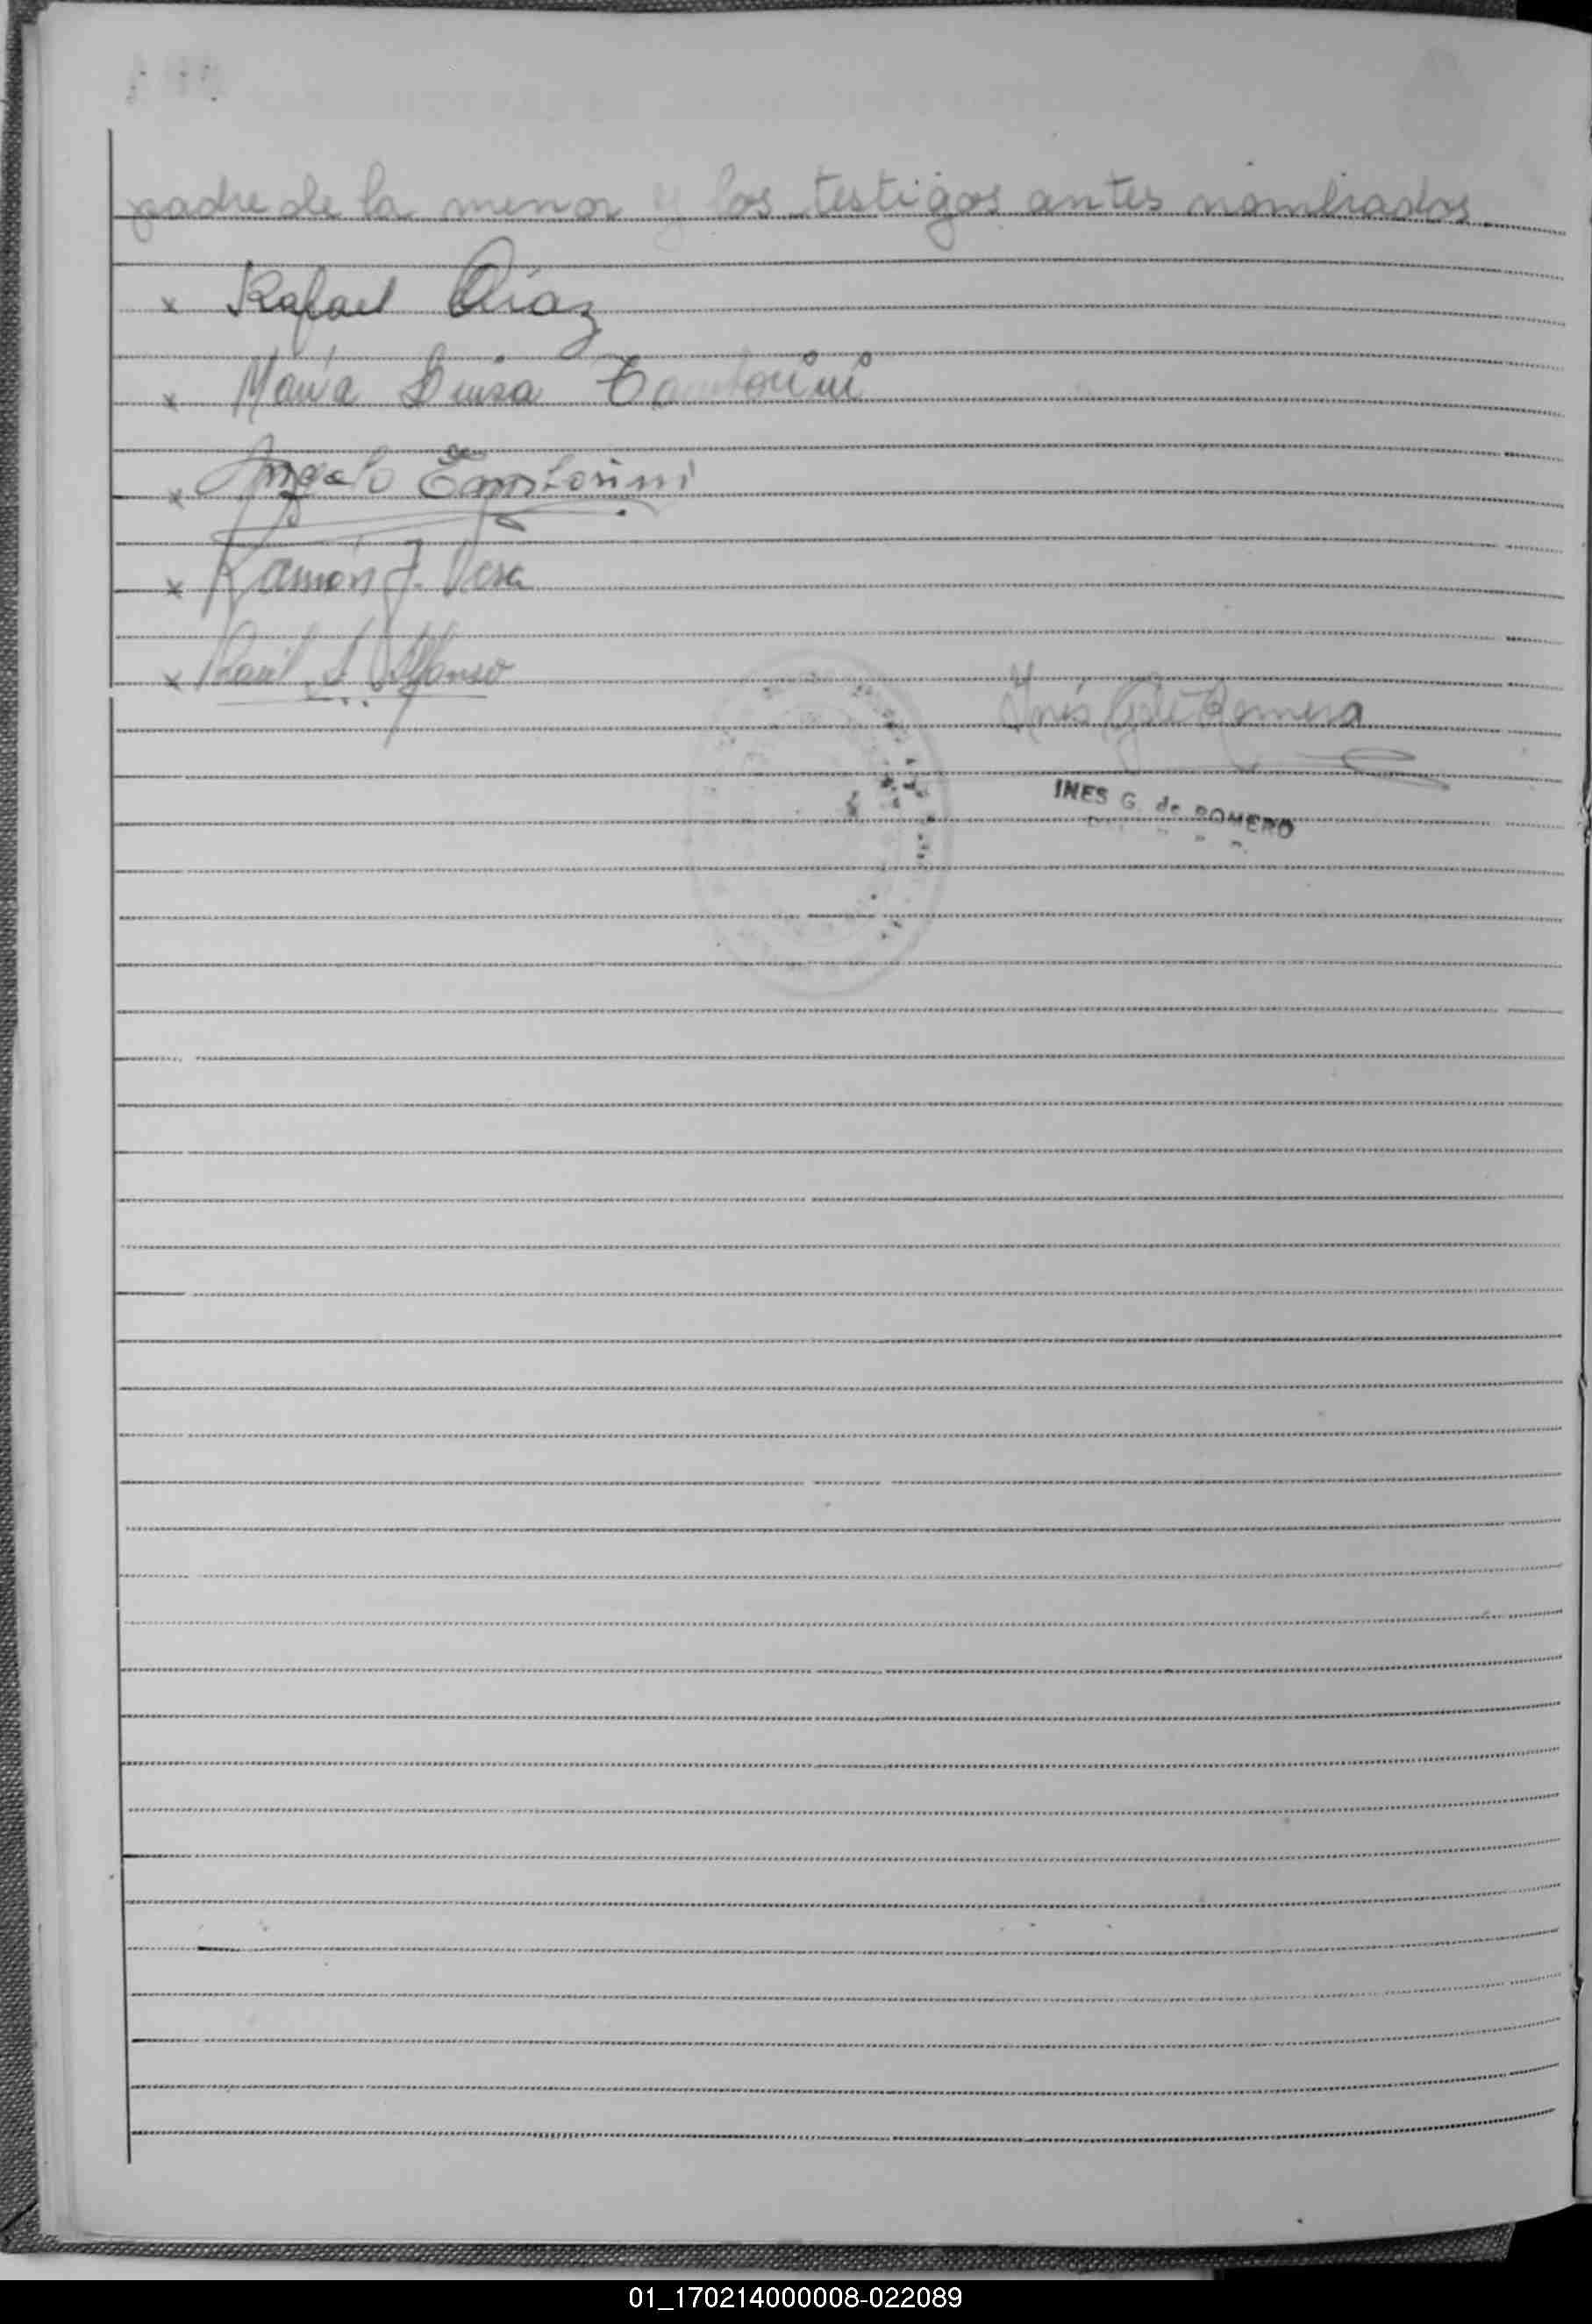 padre de la menor y los testigos antes nombrados.
x Rafael Díaz
x María Luisa Tamborini
x Angelo Tamborini
x Ramón J. Vera
x Raúl A. Alfonso
Inés G. de Romero
INES G. de ROMERO
01_170214000008-022089